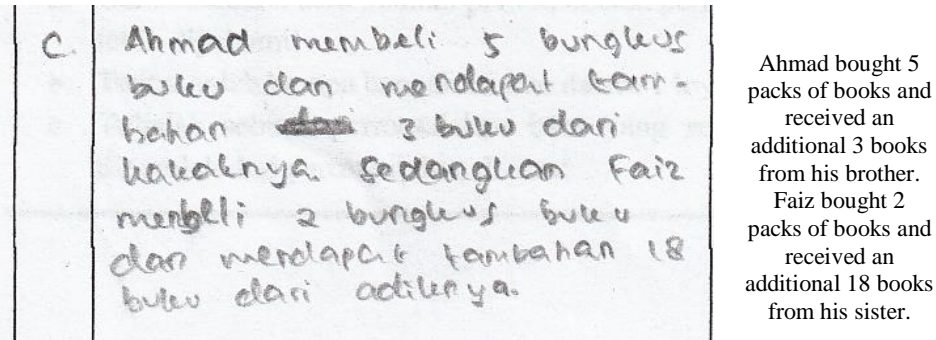 C. Ahmad membeli 5 bungkus
buku dan mendapat tam-
bahan 3 buku dari
kakaknya. Sedangkan Faiz
membeli 2 bungkus buku
dan mendapat tambahan 18
buku dari adiknya.
Ahmad bought 5
packs of books and
received an
additional 3 books
from his brother.
Faiz bought 2
packs of books and
received an
additional 18 books
from his sister.